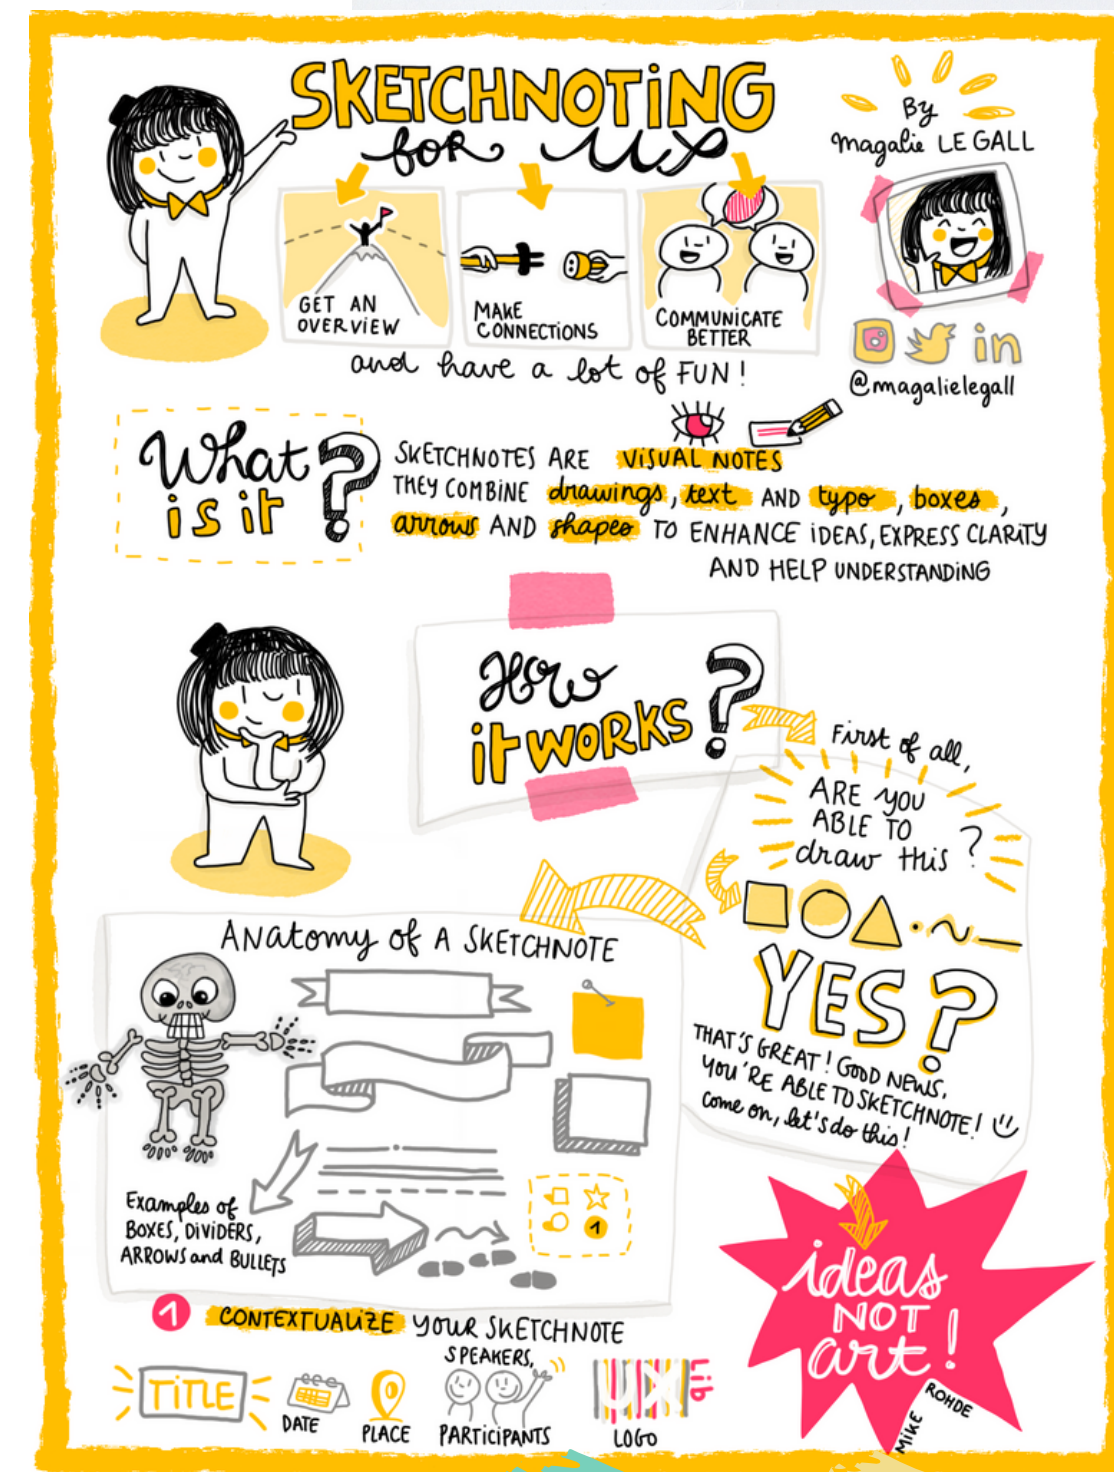 SKETCHNOTiNG
for UX
By
Magalie LE GALL
GET AN
OVERViEW
MAKE
CONNECTIONS
COMMUNICATE
BETTER
and have a lot of FUN!
in
@magalielegall
What
is it ?
SKETCHNOTES ARE ViSUAL NOTES
THEY COMBiNE drawings, text AND typo, boxes,
arrows AND shapes TO ENHANCE iDEAS, EXPRESS CLARiTY
AND HELP UNDERSTANDiNG
How
it WORKS ?
First of all,
ARE you
ABLE TO
draw this ?
YES?
THAT'S GREAT! GOOD NEWS,
YOU'RE ABLE TO SKETCHNOTE!
Come on, let's do this!
ANatomy of A SKETCHNOTE
Examples of
BOXES, DiViDERS,
ARROWS and BULLETS
1
ideas
NOT
art!
MIKE ROHDE
1 CONTEXTUALiZE YOUR SKETCHNOTE
TiTLE
DATE
PLACE
SPEAKERS,
PARTiCiPANTS
UX Lib
LOGO